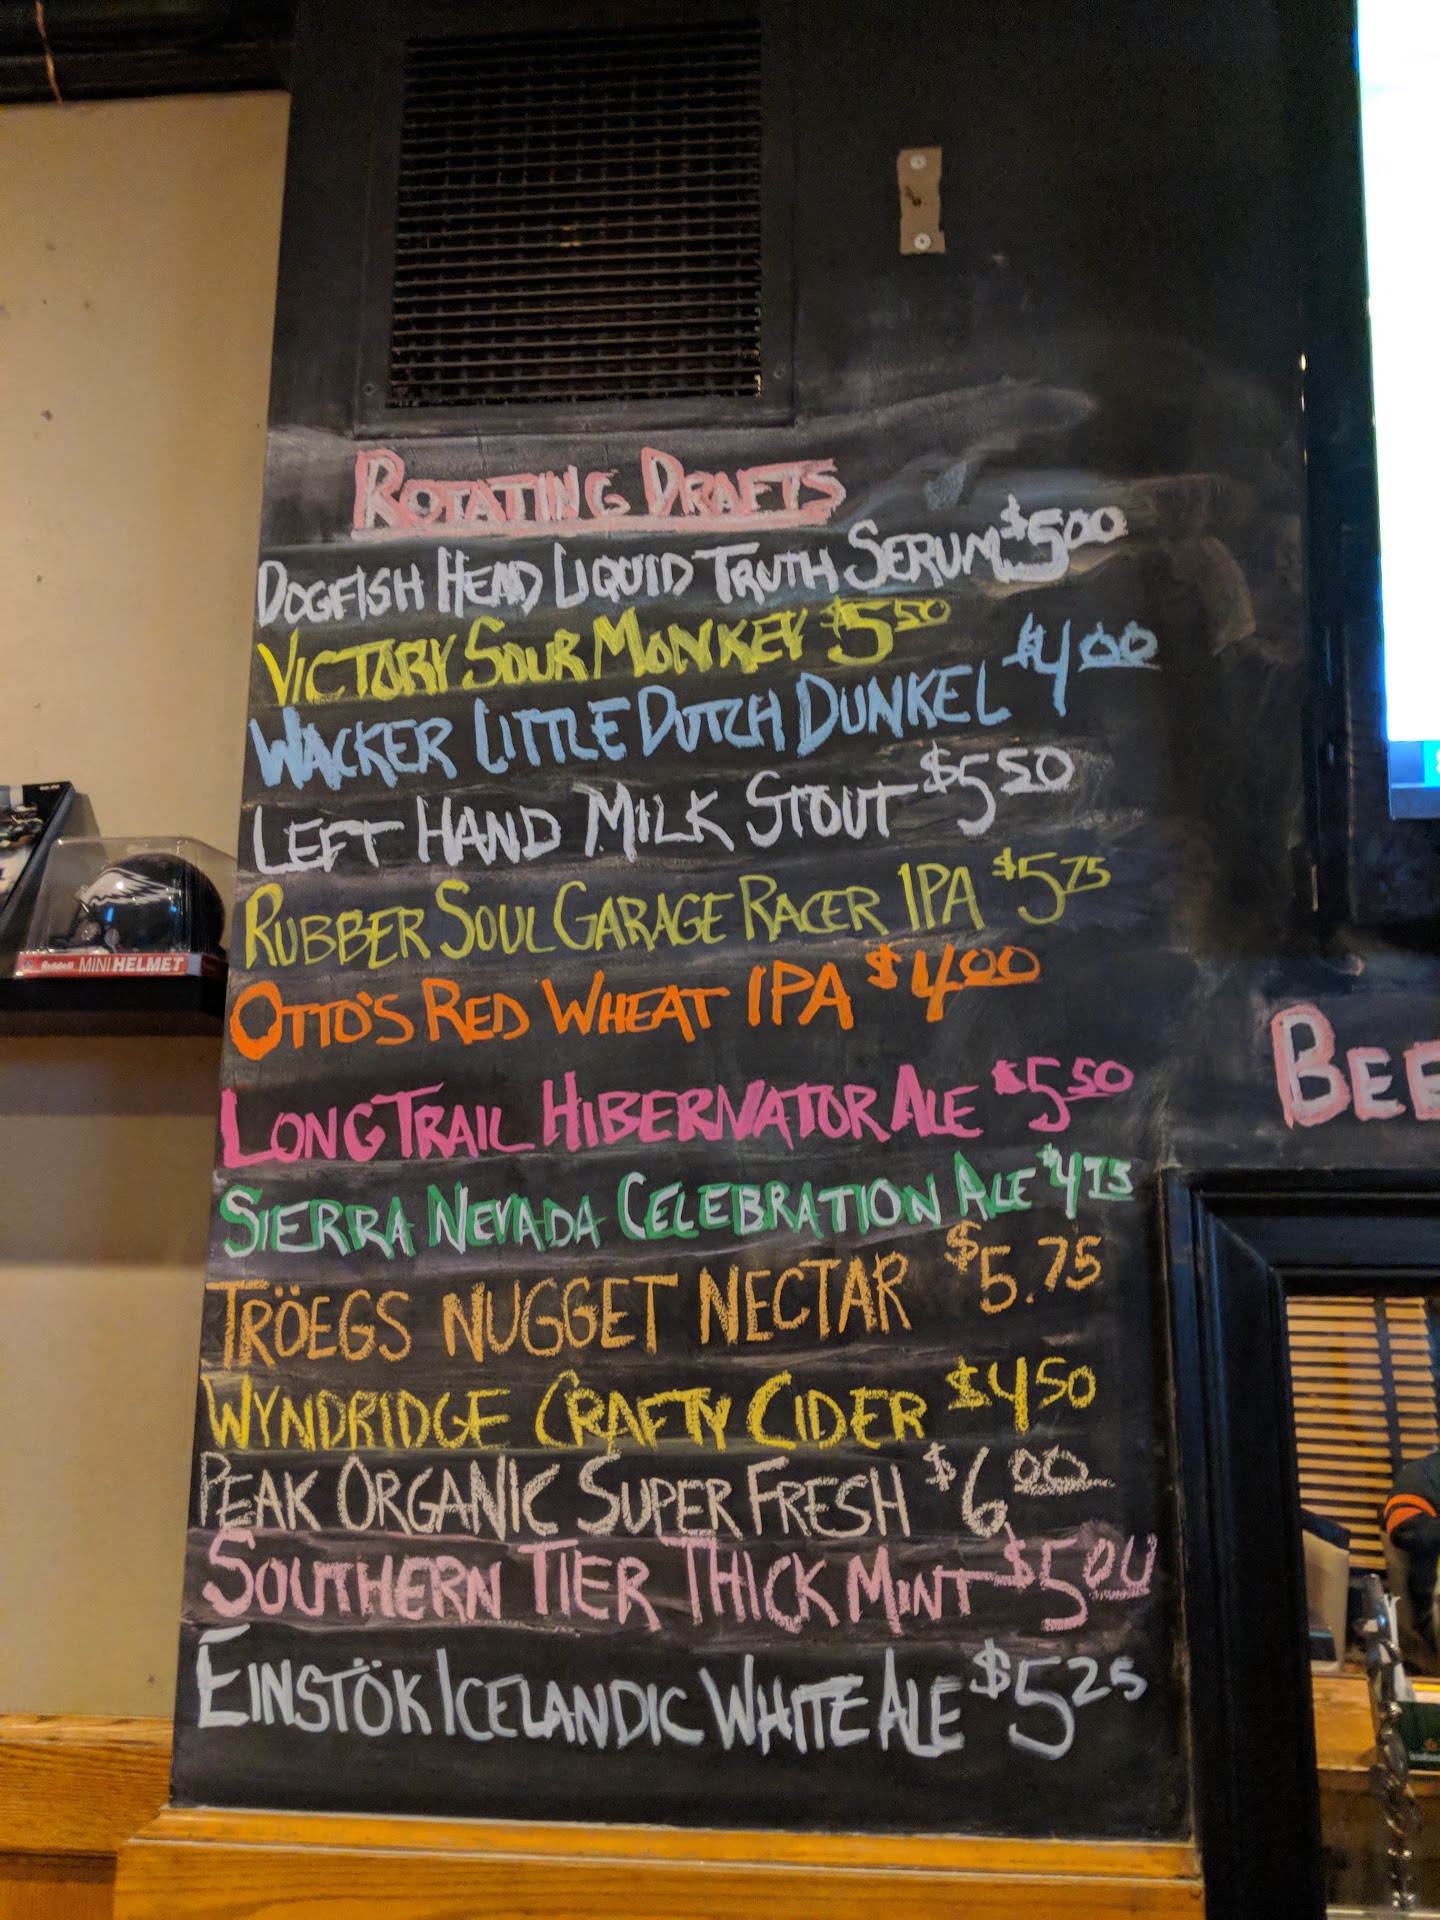 ROTATING DRAFTS
DOGFISH HEAD LIQUID TRUTH SERUM $5.00
VICTORY SOUR MONKEY $5.50
WACKER LITTLE DUTCH DUNKEL $4.00
LEFT HAND MILK STOUT $5.50
RUBBER SOUL GARAGE RACER IPA $5.75
OTTO'S RED WHEAT IPA $4.00
LONG TRAIL HIBERNATOR ALE $5.50
SIERRA NEVADA CELEBRATION ALE $4.75
TRÖEGS NUGGET NECTAR $5.75
WYNDRIDGE CRAFTY CIDER $4.50
PEAK ORGANIC SUPER FRESH $6.00
SOUTHERN TIER THICK MINT $5.00
EINSTÖK ICELANDIC WHITE ALE $5.25
Riddell MINI HELMET
BEE